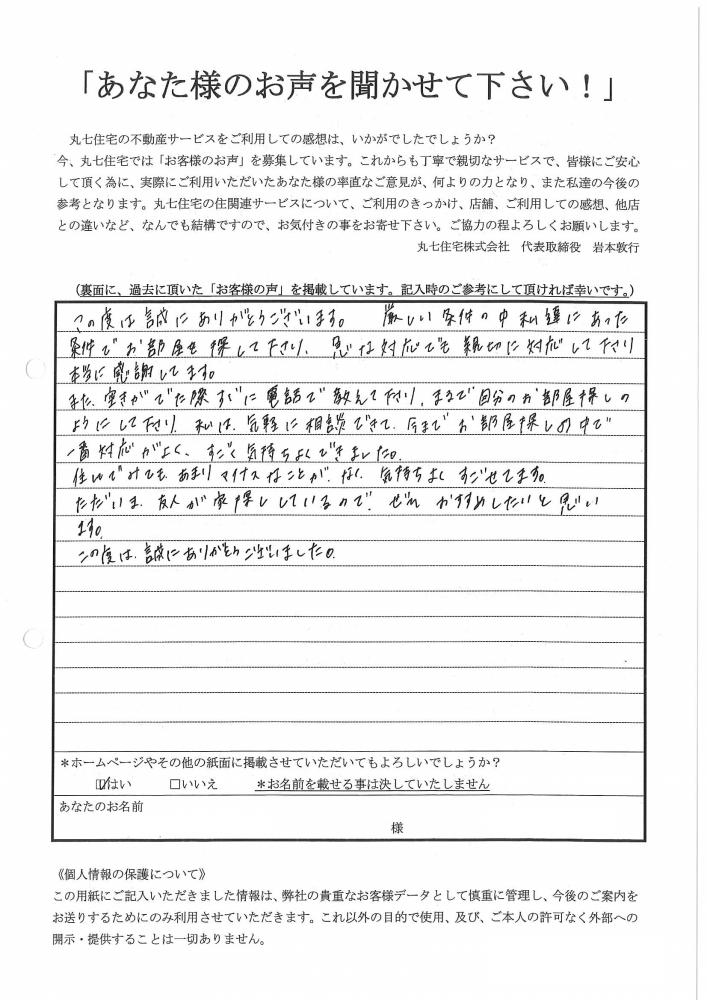 「あなた様のお声を聞かせて下さい！」
丸七住宅の不動産サービスをご利用しての感想は、いかがでしたでしょうか？
今、丸七住宅では「お客様のお声」を募集しています。これからも丁寧で親切なサービスで、皆様にご安心
して頂く為に、実際にご利用いただいたあなた様の率直なご意見が、何よりの力となり、また私達の今後の
参考となります。丸七住宅の住関連サービスについて、ご利用のきっかけ、店舗、ご利用しての感想、他店
との違いなど、なんでも結構ですので、お気付きの事をお寄せ下さい。ご協力の程よろしくお願いします。
丸七住宅株式会社　代表取締役　岩本敦行
（裏面に、過去に頂いた「お客様の声」を掲載しています。記入時のご参考にして頂ければ幸いです。）
この度は誠にありがとうございます。　厳しい条件の中私達にあった
条件でお部屋を探して下さり、急な対応でも親切に対応して下さり
本当に感謝してます。
また、空きがでた際すぐに電話で教えて下さり、まるで自分のお部屋探しの
ようにして下さり、私は、気軽に相談できて、今までお部屋探しの中で
一番対応がよく、すごく気持ちよくできました。
住んでみても、あまりマイナスなことが、なく、気持ちよくすごせてます。
ただいま、友人が家探ししているので、ぜひおすすめしたいと思い
ます。
この度は、誠にありがとうございました。
＊ホームページやその他の紙面に掲載させていただいてもよろしいでしょうか？
☑はい　□いいえ　＊お名前を載せる事は決していたしません
あなたのお名前
様
《個人情報の保護について》
この用紙にご記入いただきました情報は、弊社の貴重なお客様データとして慎重に管理し、今後のご案内を
お送りするためにのみ利用させていただきます。これ以外の目的で使用、及び、ご本人の許可なく外部への
開示・提供することは一切ありません。